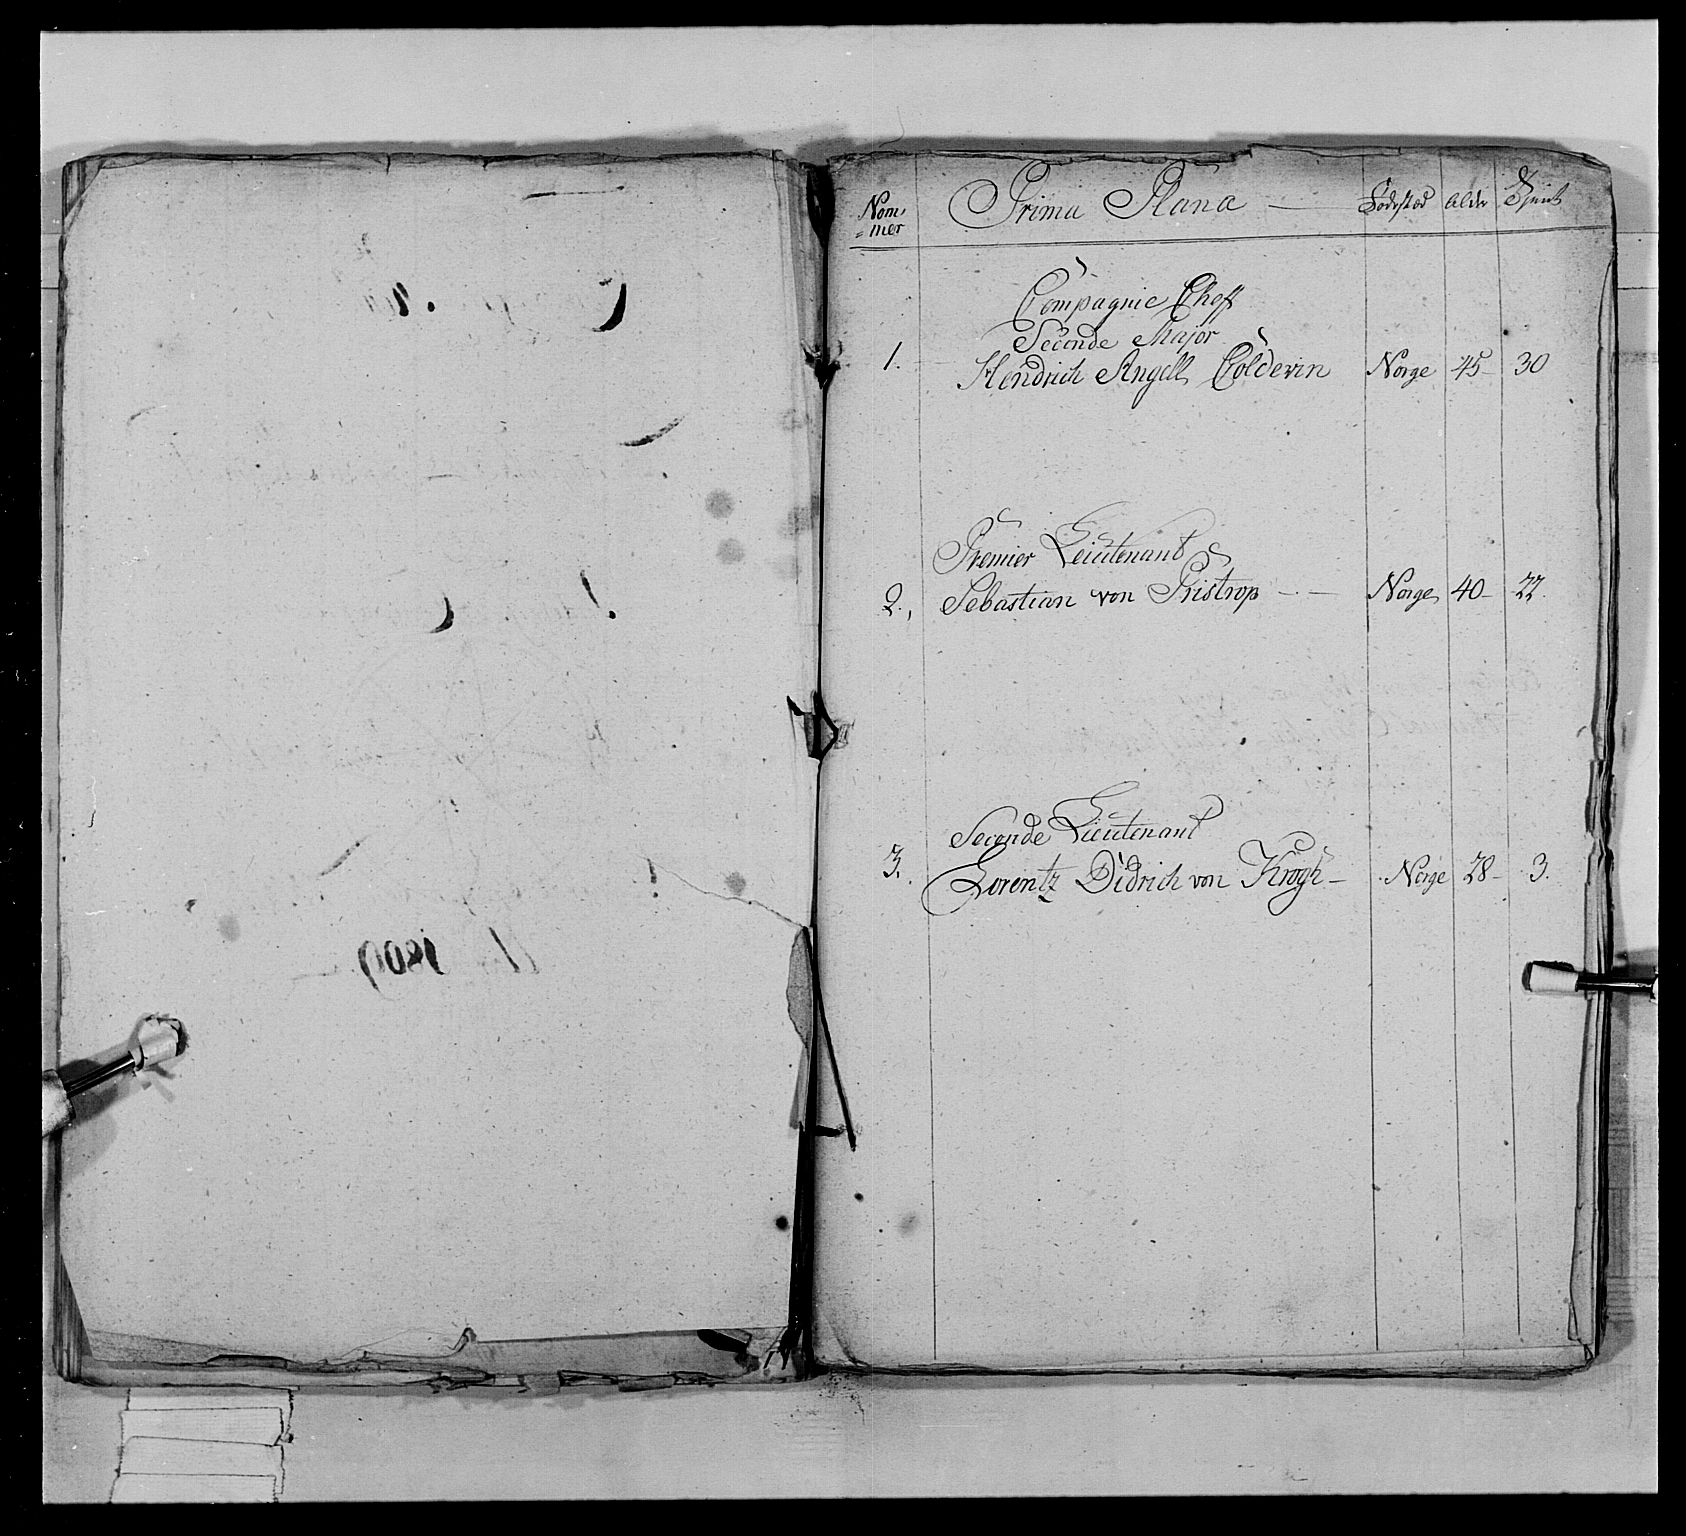 Nom-
=mer Prima Plana — Fødestæd Alder Tjent
Compagnie Cheff
Seconde Major
1. Hendrich Angell Coldevin Norge 45- 30
Premier Leiutenant
2., Sebastian von Pristrop - . — Norge 40- 22.
Seconde Lieutenant
3. Lorentz Didrich von Krogh — Norge 28- 3.